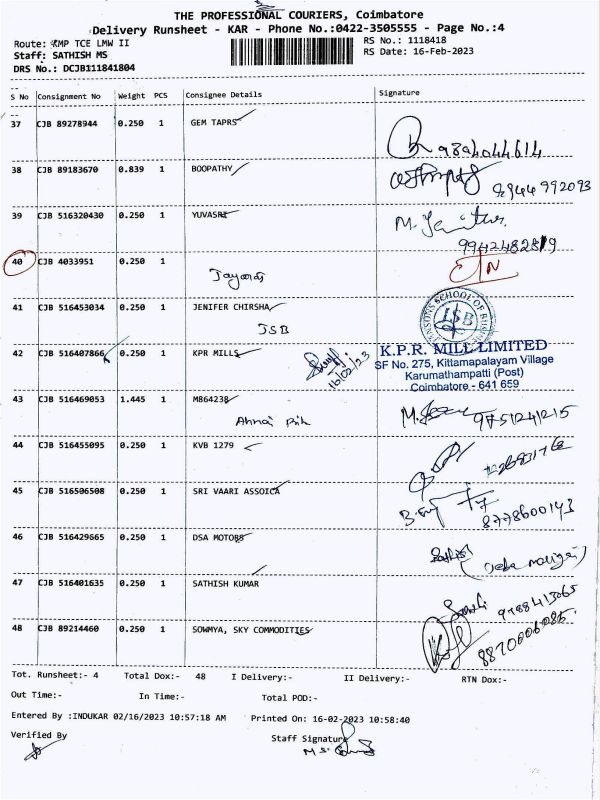 THE PROFESSIONAL COURIERS, Coimbatore
Delivery Runsheet - KAR - Phone No.:0422-3505555 - Page No.:4
Route: KMP TCE LMW II
RS No.: 1118418
Staff: SATHISH MS
RS Date: 16-Feb-2023
DRS No.: DCJB111841804
S No Consignment No Weight PCS Consignee Details Signature
37 CJB 89278944 0.250 1 GEM TAPRS
9894044614
38 CJB 89183670 0.839 1 BOOPATHY
9944 992093
39 CJB 516320430 0.250 1 YUVASRI
9942482819
40 CJB 4033951 0.250 1
41 CJB 516453034 0.250 1 JENIFER CHIRSHA
ISB
ISB
42 CJB 516407866 0.250 1 KPR MILLS
16/02/23
K.P.R. MILL LIMITED
SF No. 275, Kittamapalayam Village
Karumathampatti (Post)
Coimbatore - 641 659
43 CJB 516469053 1.445 1 M864238
9751241215
44 CJB 516455095 0.250 1 KVB 1279
45 CJB 516506508 0.250 1 SRI VAARI ASSOICA
8778600143
46 CJB 516429665 0.250 1 DSA MOTORS
47 CJB 516401635 0.250 1 SATHISH KUMAR
9788413065
48 CJB 89214460 0.250 1 SOWMYA, SKY COMMODITIES
8870006085
Tot. Runsheet:- 4 Total Dox:- 48 I Delivery:- II Delivery:- RTN Dox:-
Out Time:- In Time:- Total POD:-
Entered By :INDUKAR 02/16/2023 10:57:18 AM Printed On: 16-02-2023 10:58:40
Verified By
Staff Signature